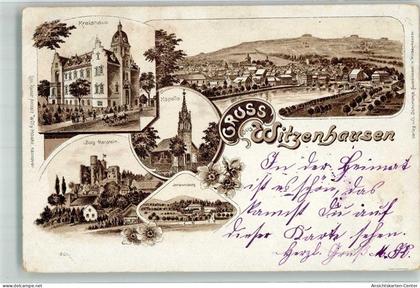 Kreishaus
Kapelle
Burg Hanstein
Johannisberg
GRUSS
aus
Witzenhausen
In der Heimat
ist es schön, das
kannst Du auf
dieser Karte sehen.
Herzl. Gruß M.
delcampe.net
Ansichtskarten-Center